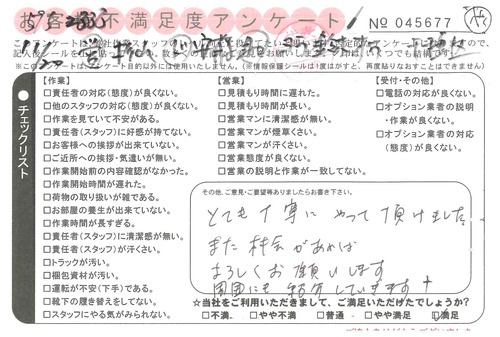 お客様不満足度アンケート
No 045677
● チェックリスト
【作業】
□責任者の対応(態度)が良くない。
□他のスタッフの対応(態度)が良くない。
□作業を見ていて不安がある。
□責任者(スタッフ)に好感が持てない。
□お客様への挨拶が出来ていない。
□ご近所への挨拶・気遣いが無い。
□作業開始前の内容確認がなかった。
□作業開始時間が遅れた。
□荷物の取り扱いが雑である。
□お部屋の養生が出来ていない。
□作業時間が長すぎる。
□責任者(スタッフ)に清潔感が無い。
□責任者(スタッフ)が汗くさい。
□トラックが汚い。
□梱包資材が汚い。
□運転が不安(下手)である。
□靴下の履き替えをしてない。
□スタッフにやる気がみられない。
【営業】
□見積もり時間に遅れた。
□見積もり時間が長い。
□営業マンに清潔感が無い。
□営業マンが煙草くさい。
□営業マンが汗くさい。
□営業態度が良くない。
□営業の説明と作業が一致してない。
【受付・その他】
□電話の対応が良くない。
□オプション業者の説明
・作業が良くない。
□オプション業者の対応
(態度)が良くない。
その他、ご意見・ご要望等ありましたらお書き下さい。
とても丁寧にやって頂けました。
また機会があれば
よろしくお願いします
周囲にも紹介していきます
☆当社をご利用いただきまして、ご満足いただけたでしょうか?
□不満 □やや不満 □普通 □やや満足 □満足